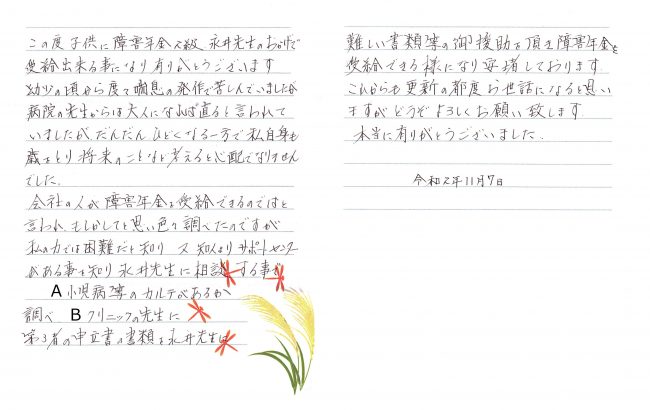 この度子供に障害年金2級、永井先生のおかげで
受給出来る事になり有りがとうございます
幼少の頃から度々喘息の発作で苦しんでいましたが
病院の先生からは大人になれば直ると言われて
いましたが、だんだんひどくなる一方で私自身も
歳をとり将来のことなど考えると心配でなりません
でした。
会社の人が障害年金を受給できるのではと
言われ、もしかしてと思い色々調べたのですが
私の力では困難だと知り 又 知人よりサポートセンター
がある事を知り永井先生に相談する事が
A小児病等のカルテがあるか
調べ Bクリニックの先生に
第3者の申立書の書類を永井先生は
難しい書類等の御援助を頂き障害年金を
受給できる様になり安堵しております
これからも更新の都度お世話になると思い
ますがどうぞよろしくお願い致します
本当に有りがとうございました。
令和2年11月7日